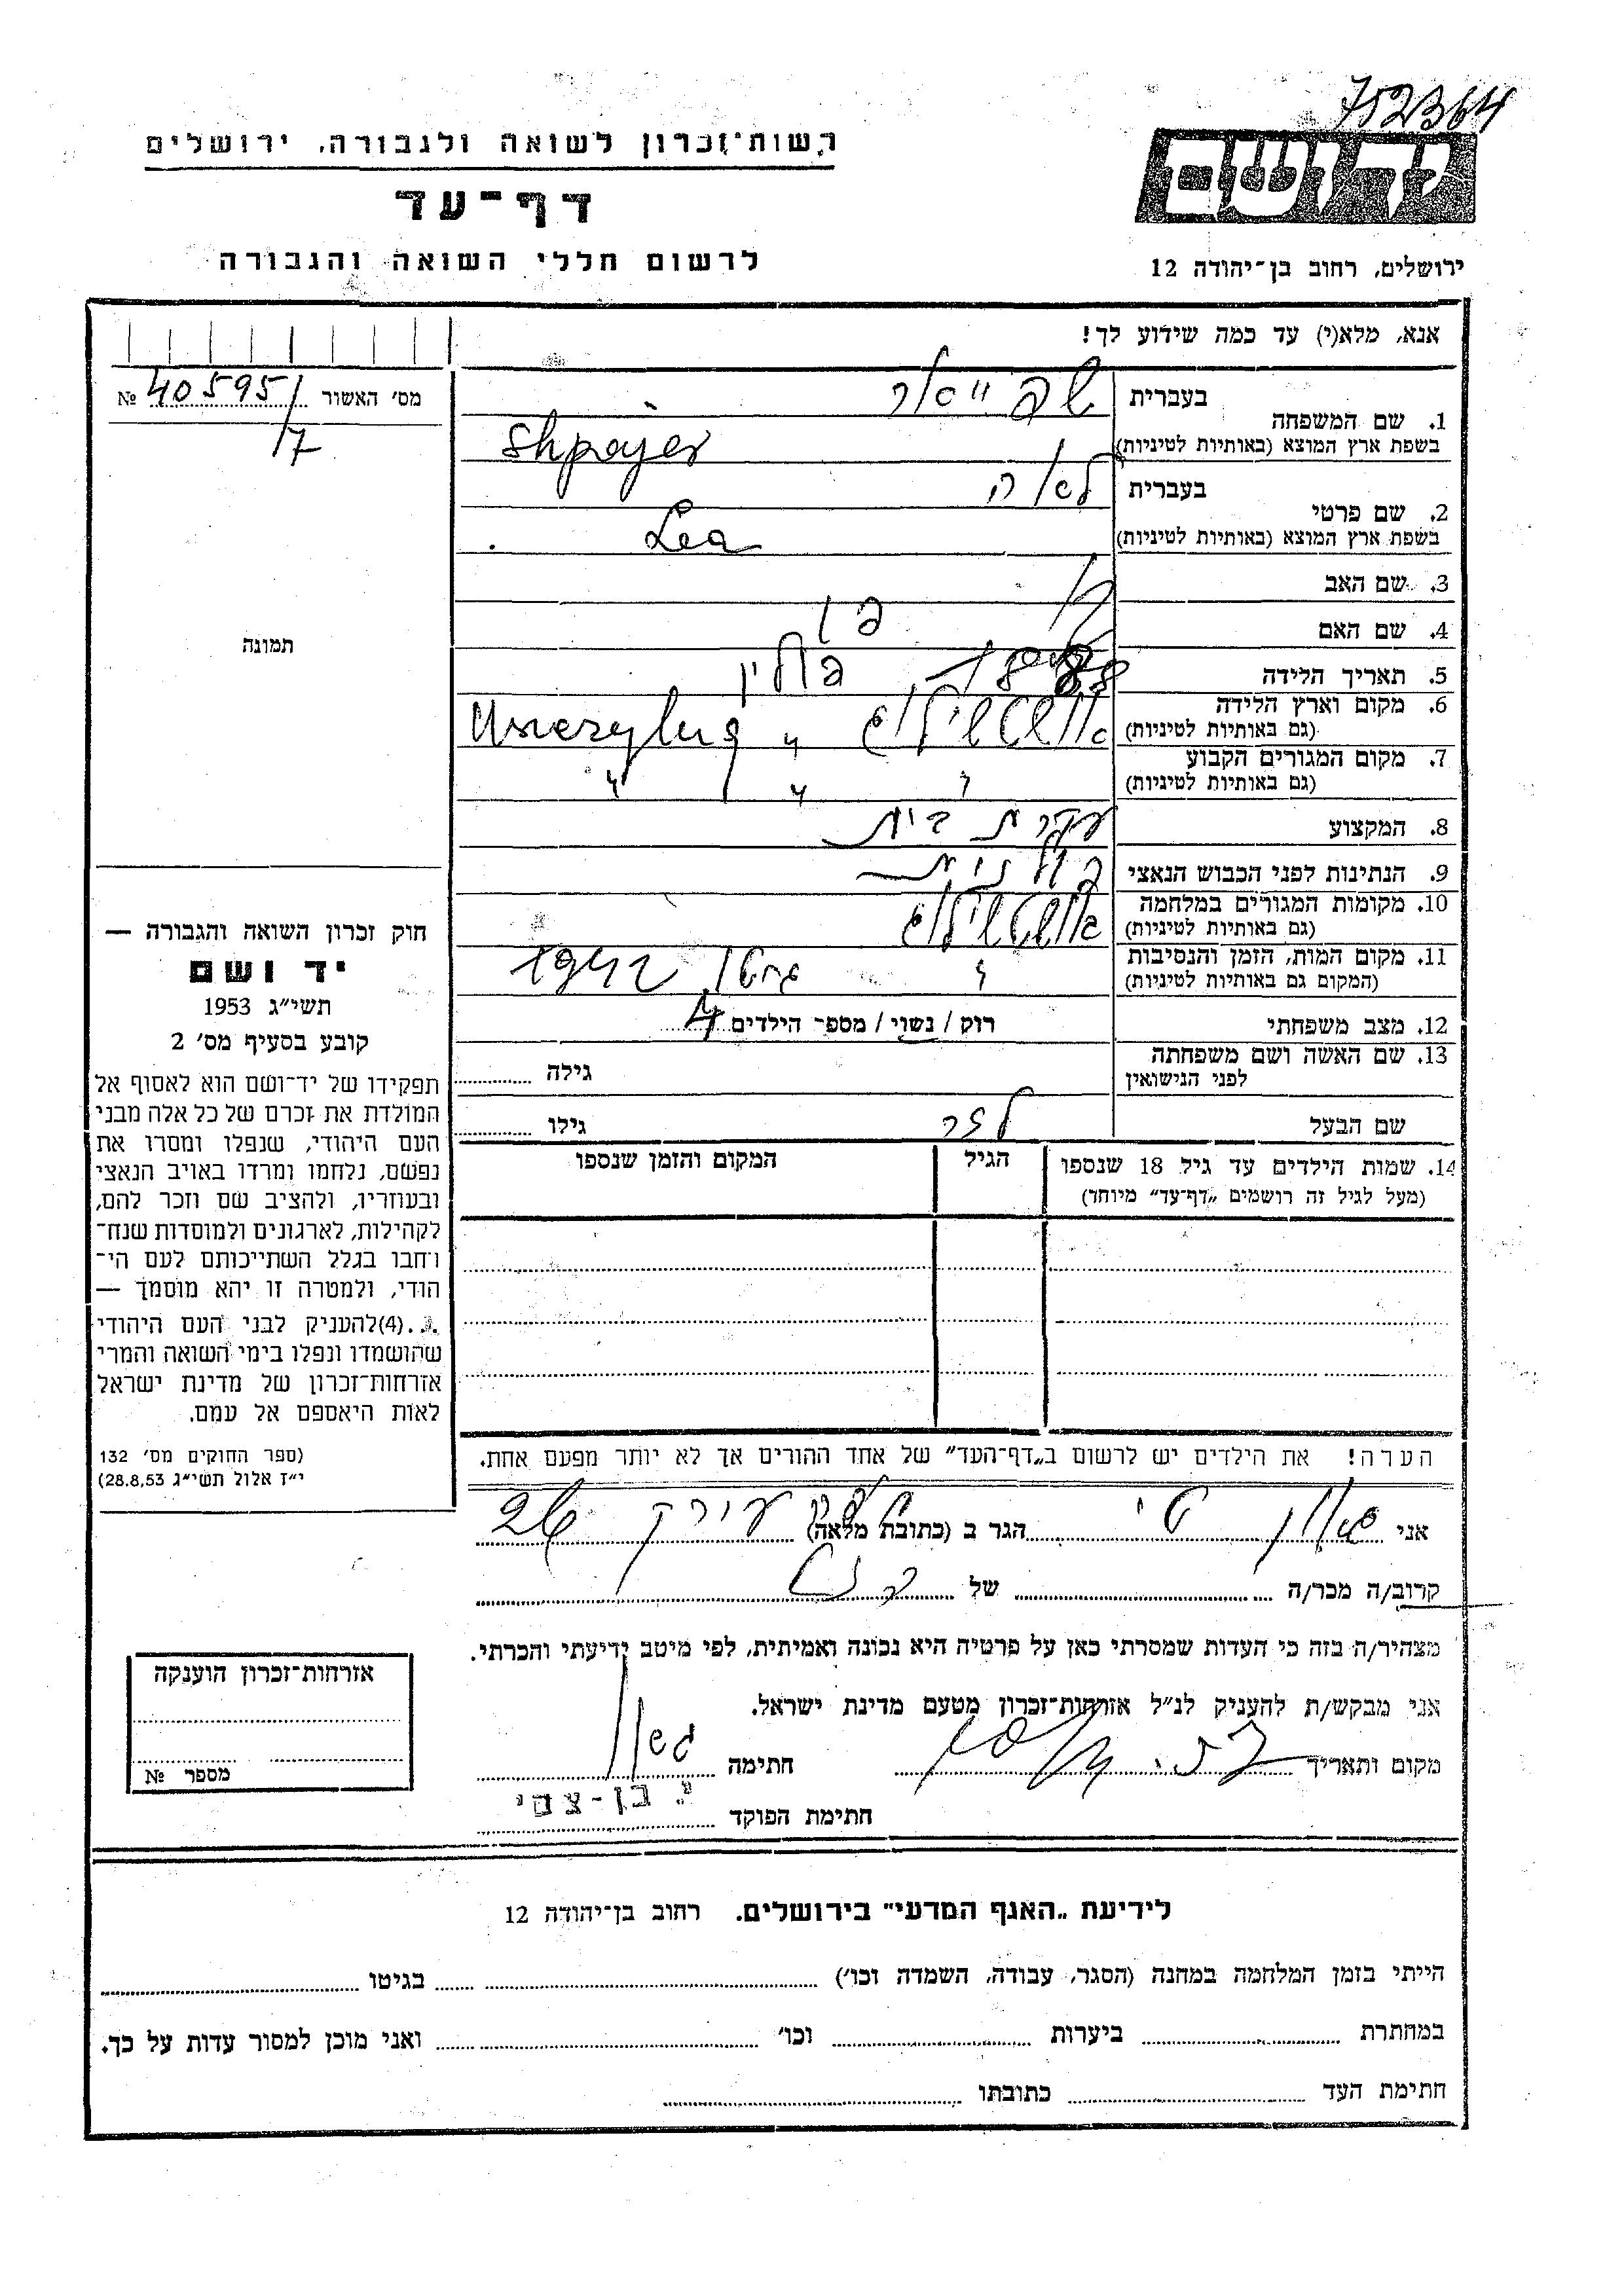 752364
רשות־זכרון לשואה ולגבורה, ירושלים
יד ושם
דף־עד
לרשום חללי השואה והגבורה
ירושלים, רחוב בן־יהודה 12
אנא, מלא(י) עד כמה שידוע לך!
מס׳ האשור № 405951
/7
תמונה
1. שם המשפחה בעברית שפייאר
בשפת ארץ המוצא (באותיות לטיניות) Shpajer
2. שם פרטי בעברית לאה
בשפת ארץ המוצא (באותיות לטיניות) Lea
3. שם האב
4. שם האם
5. תאריך הלידה 1888
6. מקום וארץ הלידה פולין
(גם באותיות לטיניות)
7. מקום המגורים הקבוע " " "
(גם באותיות לטיניות)
8. המקצוע עקרת בית
9. הנתינות לפני הכבוש הנאצי פולנית
10. מקומות המגורים במלחמה
(גם באותיות לטיניות)
11. מקום המות, הזמן והנסיבות " גטו 1942
(המקום גם באותיות לטיניות)
12. מצב משפחתי רוק / נשוי / מספר הילדים 4
13. שם האשה ושם משפחתה גילה
לפני הנישואין
שם הבעל לזר גילו
14. שמות הילדים עד גיל 18 שנספו הגיל המקום והזמן שנספו
(מעל לגיל זה רושמים „דף־עד״ מיוחד)
חוק זכרון השואה והגבורה —
יד ושם
תשי״ג 1953
קובע בסעיף מס׳ 2
תפקידו של יד־ושם הוא לאסוף אל
המולדת את זכרם של כל אלה מבני
העם היהודי, שנפלו ומסרו את
נפשם, נלחמו ומרדו באויב הנאצי
ובעוזריו, ולהציב שם וזכר להם,
לקהילות, לארגונים ולמוסדות שנח־
רחבו בגלל השתייכותם לעם הי־
הודי, ולמטרה זו יהא מוסמך —
...(4)להעניק לבני העם היהודי
שהושמדו ונפלו בימי השואה והמרי
אזרחות־זכרון של מדינת ישראל
לאות היאספם אל עמם.
(ספר החוקים מס׳ 132
י״ז אלול תשי״ג 28.8,53)
הערה! את הילדים יש לרשום ב„דף־העד״ של אחד ההורים אך לא יותר מפעם אחת.
אני הגר ב (כתובת מלאה) 26
קרוב/ה מכר/ה של
מצהיר/ה בזה כי העדות שמסרתי כאן על פרטיה היא נכונה ואמיתית, לפי מיטב ידיעתי והכרתי.
אני מבקש/ת להעניק לנ״ל אזרחות־זכרון מטעם מדינת ישראל.
מקום ותאריך חתימה
חתימת הפוקד י. בן-צבי
אזרחות־זכרון הוענקה
מספר №
לידיעת „האגף המדעי״ בירושלים. רחוב בן־יהודה 12
הייתי בזמן המלחמה במחנה (הסגר, עבודה, השמדה וכו׳) בגיטו
במחתרת ביערות וכו׳ ואני מוכן למסור עדות על כך.
חתימת העד כתובתו